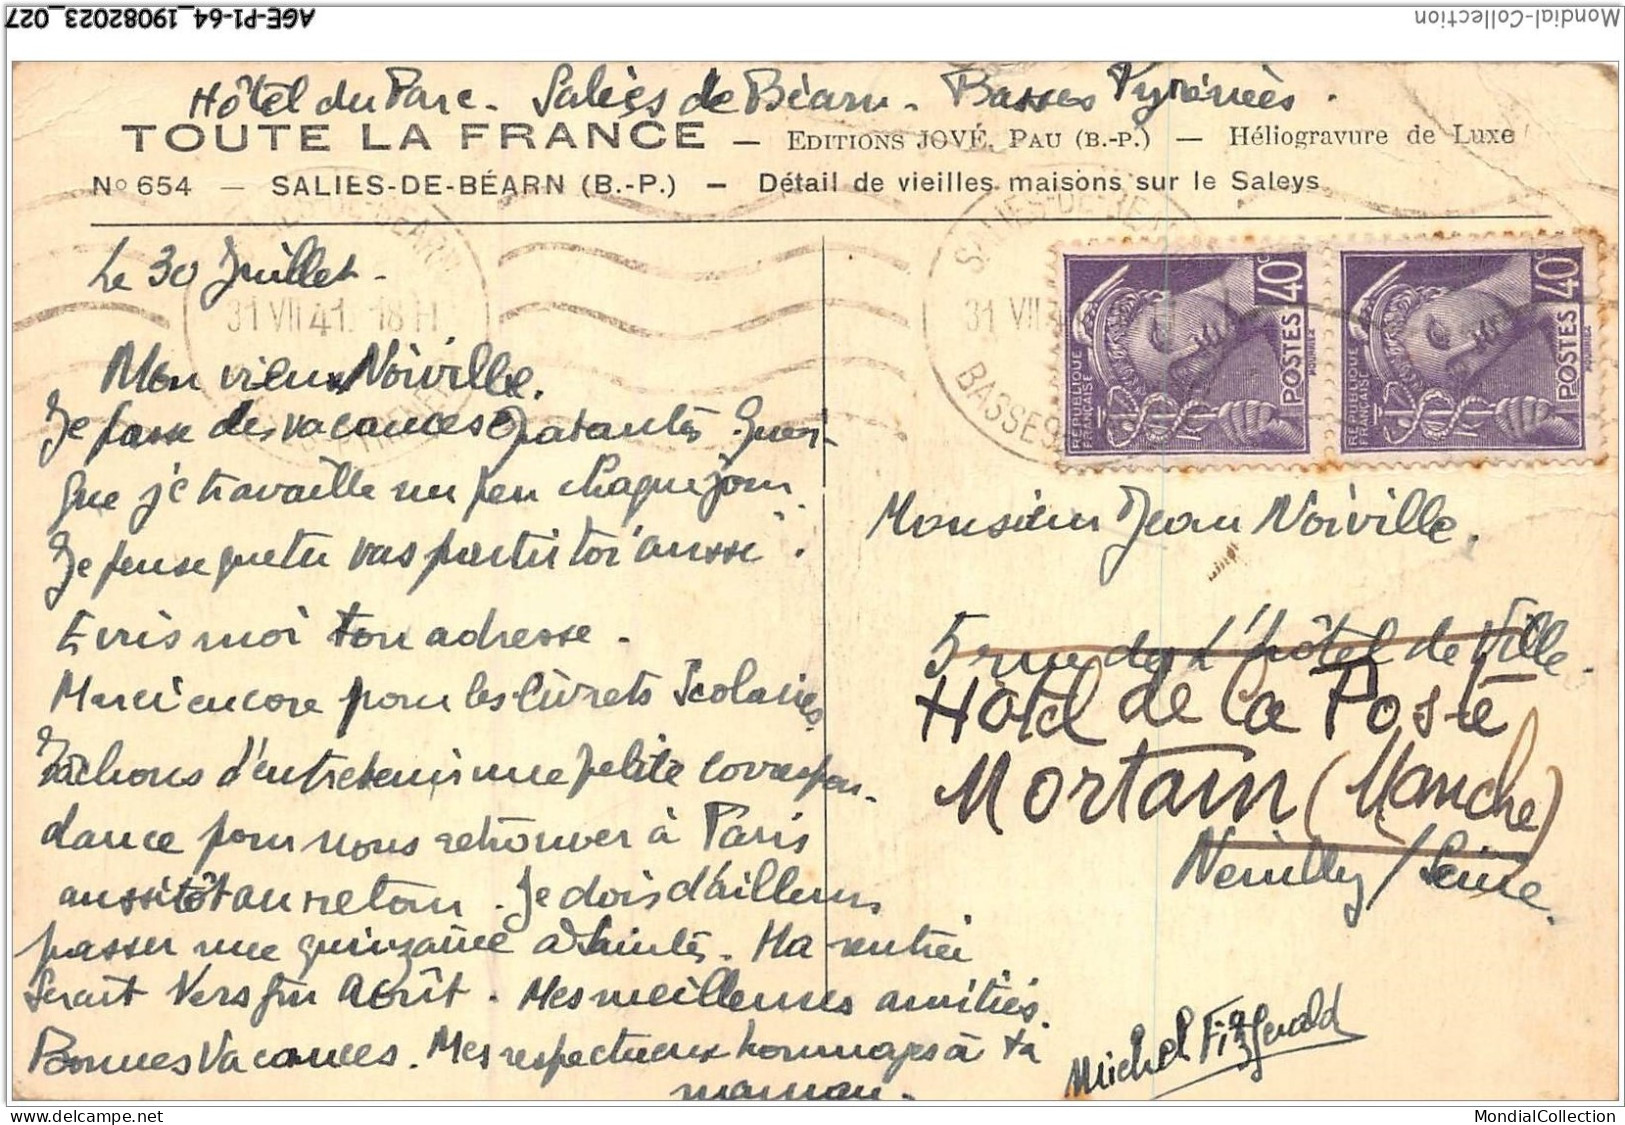 AGE-P1-64_19082023_027
Mondial-Collection
Hôtel du Parc - Salies de Béarn - Basses Pyrénées.
TOUTE LA FRANCE — EDITIONS JOVÉ, PAU (B.-P.) — Héliogravure de Luxe
No 654 — SALIES-DE-BÉARN (B.-P.) — Détail de vieilles maisons sur le Saleys
Le 30 Juillet -
31 VII 41. 18 H
Mon vieux Noiville.
Je passe des vacances épatantes quoi-
que je travaille un peu chaque jour.
Je pense que tu vas partir toi aussi.
Ecris moi ton adresse -
Merci encore pour les livrets scolaires
Tâchons d'entretenir une petite correspon-
dance pour nous retrouver à Paris
aussitôt au retour. Je dois d'ailleurs
passer une quinzaine à Saintes. Ma rentrée
serait vers fin Août. Mes meilleures amitiés.
Bonnes Vacances. Mes respectueux hommages à ta
maman.
SALIES-DE-BEARN
31 VII
BASSES
RÉPUBLIQUE FRANÇAISE
POSTES 40c
RÉPUBLIQUE FRANÇAISE
POSTES 40c
Monsieur Jean Noiville.
5 rue de l'hôtel de Ville.
Hôtel de la Poste
Mortain (Manche)
Neuilly / Seine.
Michel Fitzgerald
MondialCollection